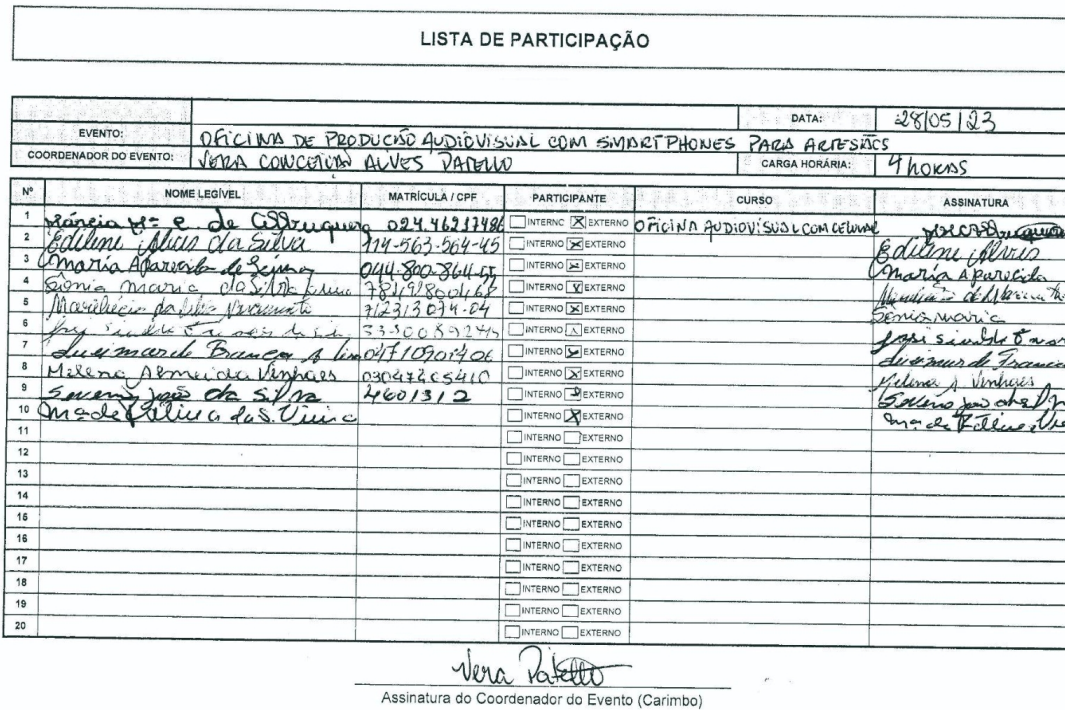 LISTA DE PARTICIPAÇÃO
DATA: 28/05/23
EVENTO: OFICINA DE PRODUCÃO AUDIOVISUAL COM SMARTPHONES PARA ARTESÃS
COORDENADOR DO EVENTO: VERA CONCEIÇÃO ALVES PATELLO CARGA HORÁRIA: 4 HORAS
Nº NOME LEGÍVEL MATRÍCULA / CPF PARTICIPANTE CURSO ASSINATURA
1 Márcia Mª de 024.46237486 INTERNO X EXTERNO OFICINA AUDIOVISUAL COM CELULAR
2 Edilene Alves da Silva 714-563-564-45 INTERNO X EXTERNO Edilene Alves
3 Maria Aparecida de 044-800-864- INTERNO X EXTERNO Maria Aparecida
4 Sônia maria da Silva INTERNO X EXTERNO
5 da Silva 712313074-04 INTERNO X EXTERNO Sonia maria
6 INTERNO EXTERNO
7 Lucimar de França 04710901406 INTERNO X EXTERNO Lucimar de França
8 Milena Almeida Vinhaes 03047265410 INTERNO X EXTERNO Milena A. Vinhaes
9 Severino joão da Silva 4601312 INTERNO EXTERNO Severino joão da Silva
10 Mª de Fátima da S. INTERNO X EXTERNO Mª de Fátima
11 INTERNO EXTERNO
12 INTERNO EXTERNO
13 INTERNO EXTERNO
14 INTERNO EXTERNO
15 INTERNO EXTERNO
16 INTERNO EXTERNO
17 INTERNO EXTERNO
18 INTERNO EXTERNO
19 INTERNO EXTERNO
20 INTERNO EXTERNO
Vera Patello
Assinatura do Coordenador do Evento (Carimbo)